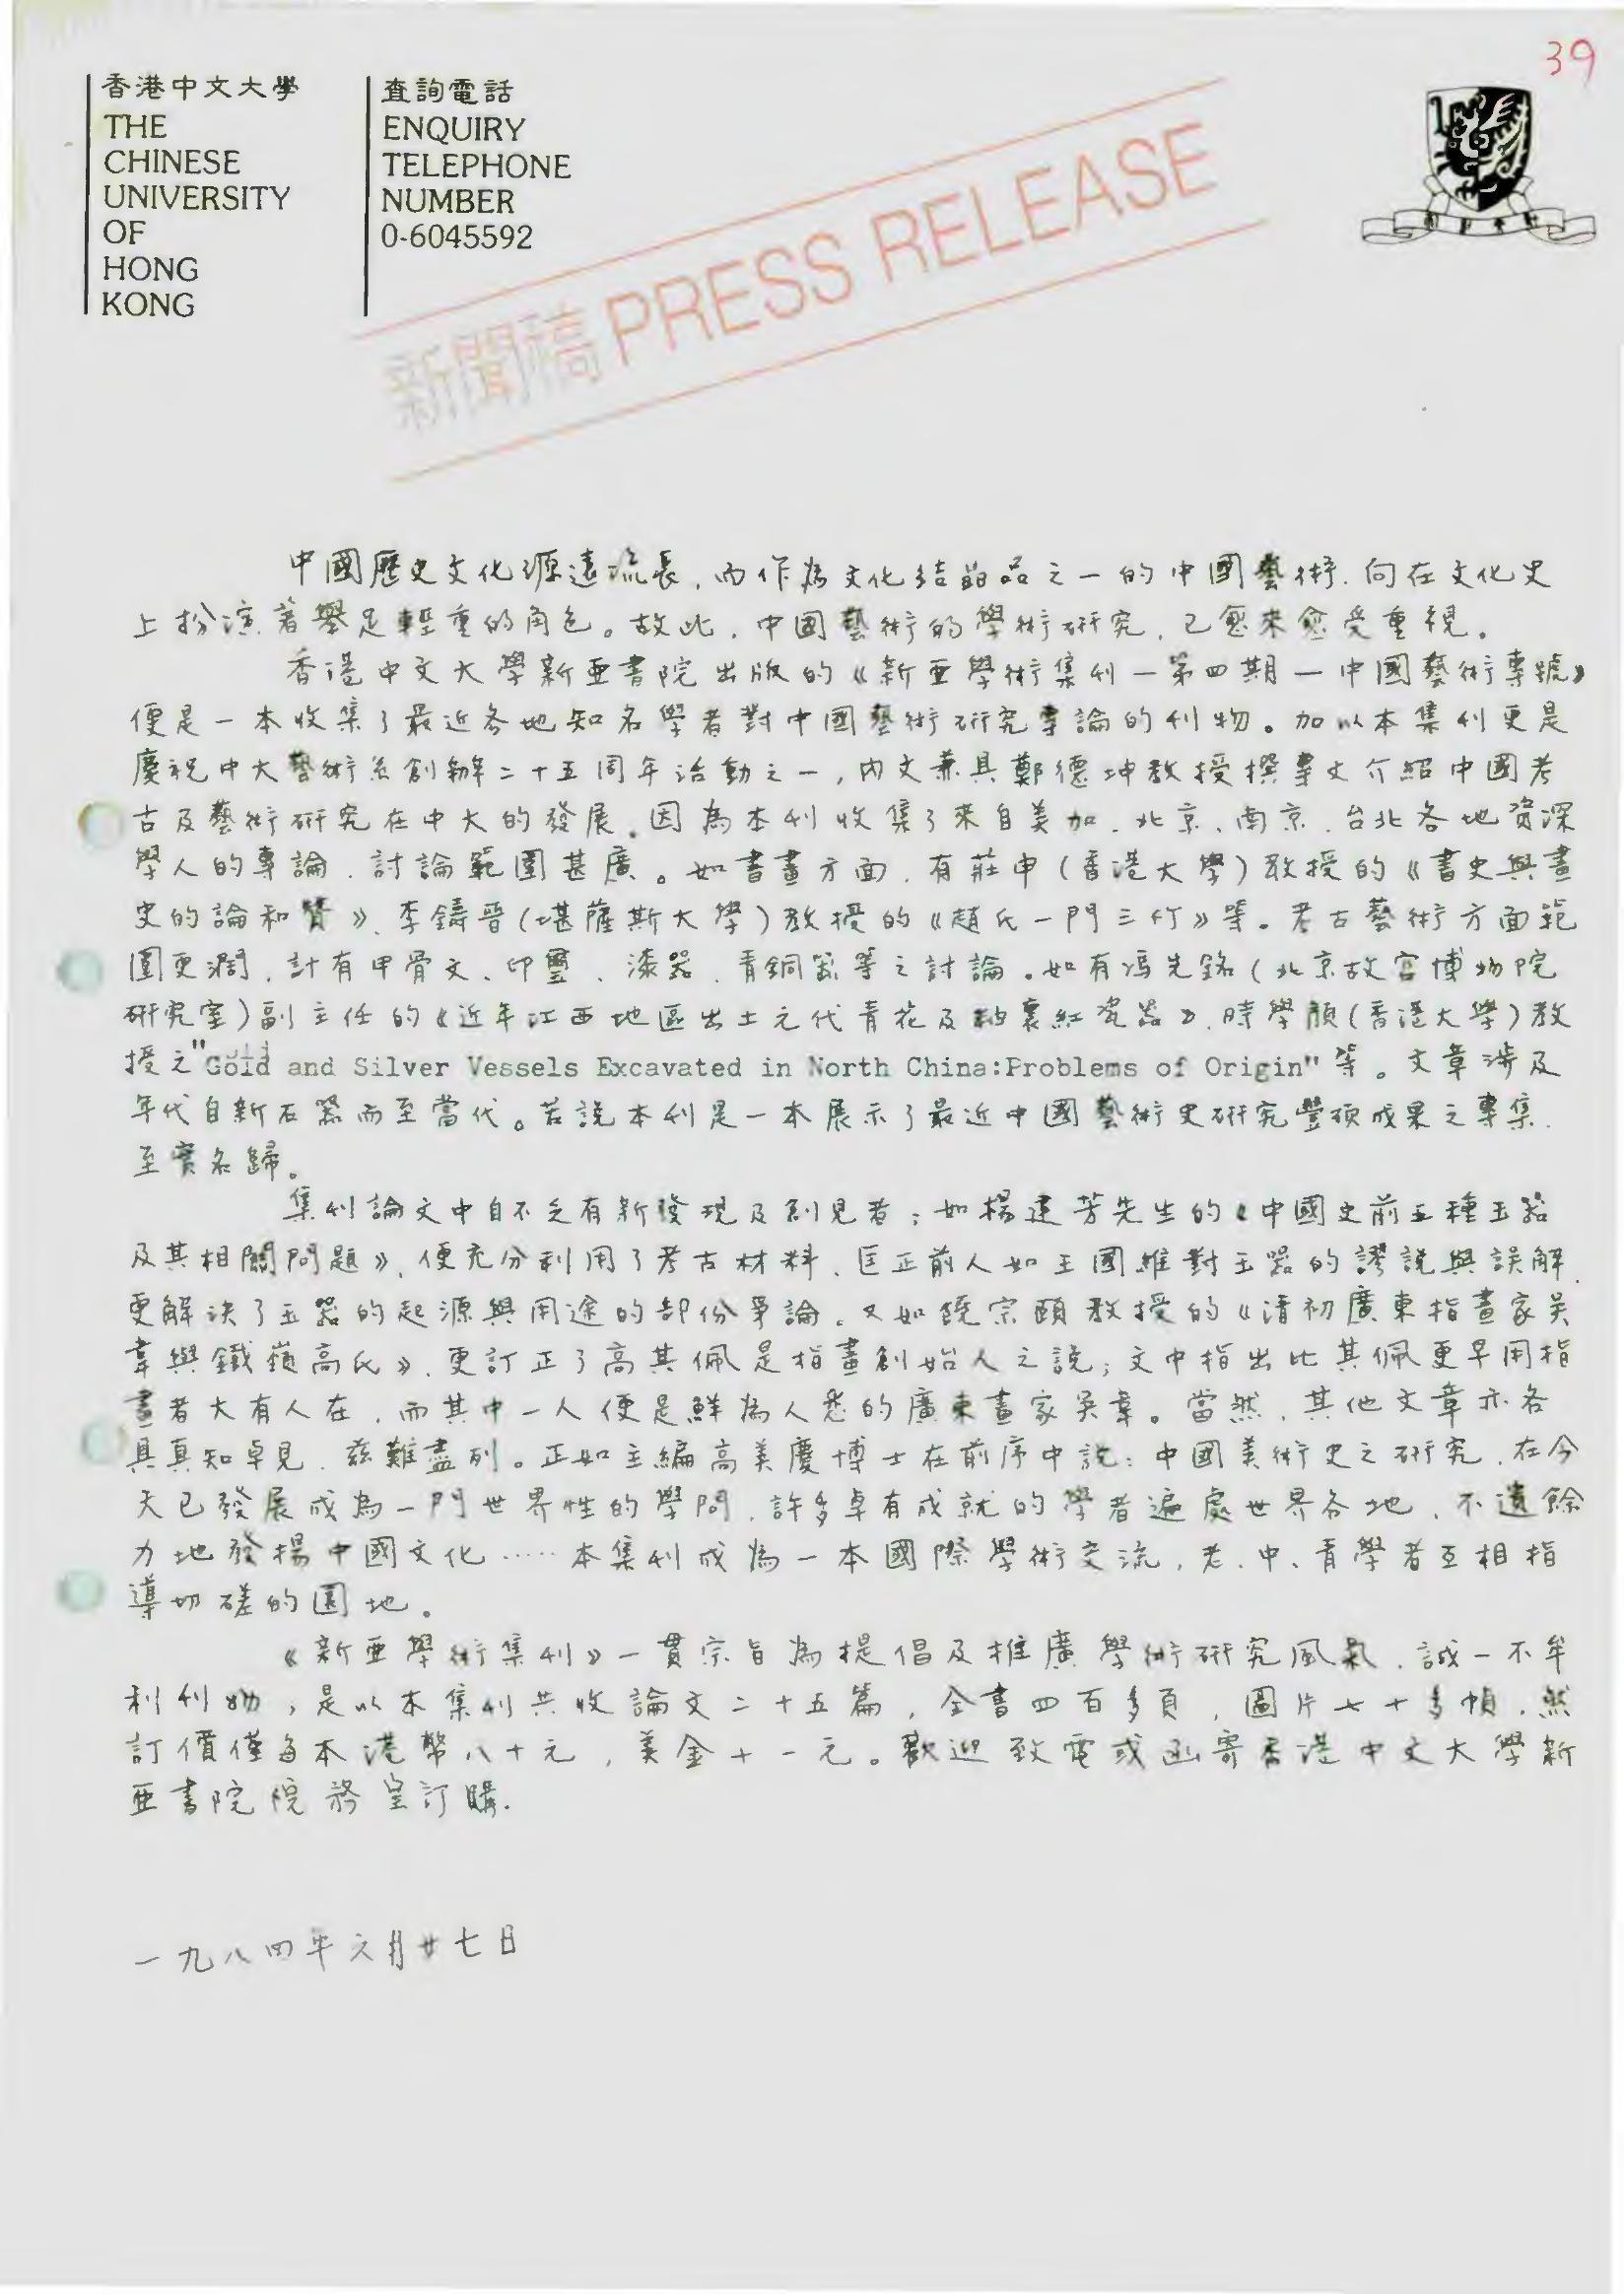 39
香港中文大學
THE
CHINESE
UNIVERSITY
OF
HONG
KONG
查詢電話
ENQUIRY
TELEPHONE
NUMBER
0-6045592
新聞稿 PRESS RELEASE
中國歷史文化源遠流長，而作為文化結晶品之一的中國藝術，向在文化史
上扮演著舉足輕重的角色。故此，中國藝術的學術研究，已愈來愈受重視。
香港中文大學新亞書院出版的《新亞學術集刊—第四期—中國藝術專號》
便是一本收集了最近各地知名學者對中國藝術研究專論的刊物。加以本集刊更是
慶祝中大藝術系創辦二十五周年活動之一，內文兼具鄭德坤教授撰專文介紹中國考
古及藝術研究在中大的發展。因為本刊收集了來自美加、北京、南京、台北各地資深
學人的專論，討論範圍甚廣。如書畫方面，有莊申（香港大學）教授的《書史與畫
史的論和贊》、李鑄晉（堪薩斯大學）教授的《趙氏一門三竹》等。考古藝術方面範
圍更濶，計有甲骨文、印璽、漆器、青銅器等之討論。如有馮先銘（北京故宮博物院
研究室）副主任的《近年江西地區出土元代青花及釉裏紅瓷器》，時學顏（香港大學）教
授之"Gold and Silver Vessels Excavated in North China:Problems of Origin"等。文章涉及
年代自新石器而至當代。若說本刊是一本展示了最近中國藝術史研究豐碩成果之專集，
至實名歸。
集刊論文中自不乏有新發現及創見者；如楊建芳先生的《中國史前五種玉器
及其相關問題》，便充分利用了考古材料，匡正前人如王國維對玉器的謬說與誤解，
更解決了玉器的起源與用途的部份爭論。又如饒宗頤教授的《清初廣東指畫家吳
韋與鐵嶺高氏》，更訂正了高其佩是指畫創始人之說；文中指出比其佩更早用指
畫者大有人在，而其中一人便是鮮為人悉的廣東畫家吳韋。當然，其他文章亦各
具真知卓見，茲難盡列。正如主編高美慶博士在前序中說：中國美術史之研究，在今
天已發展成為一門世界性的學問，許多卓有成就的學者遍處世界各地，不遺餘
力地發揚中國文化……本集刊成為一本國際學術交流，老、中、青學者互相指
導切磋的園地。
《新亞學術集刊》一貫宗旨為提倡及推廣學術研究風氣，誠一不牟
利刊物，是以本集刊共收論文二十五篇，全書四百多頁，圖片七十多幀，然
訂價僅每本港幣八十元，美金十一元。歡迎致電或函寄香港中文大學新
亞書院院務室訂購。
一九八四年六月廿七日